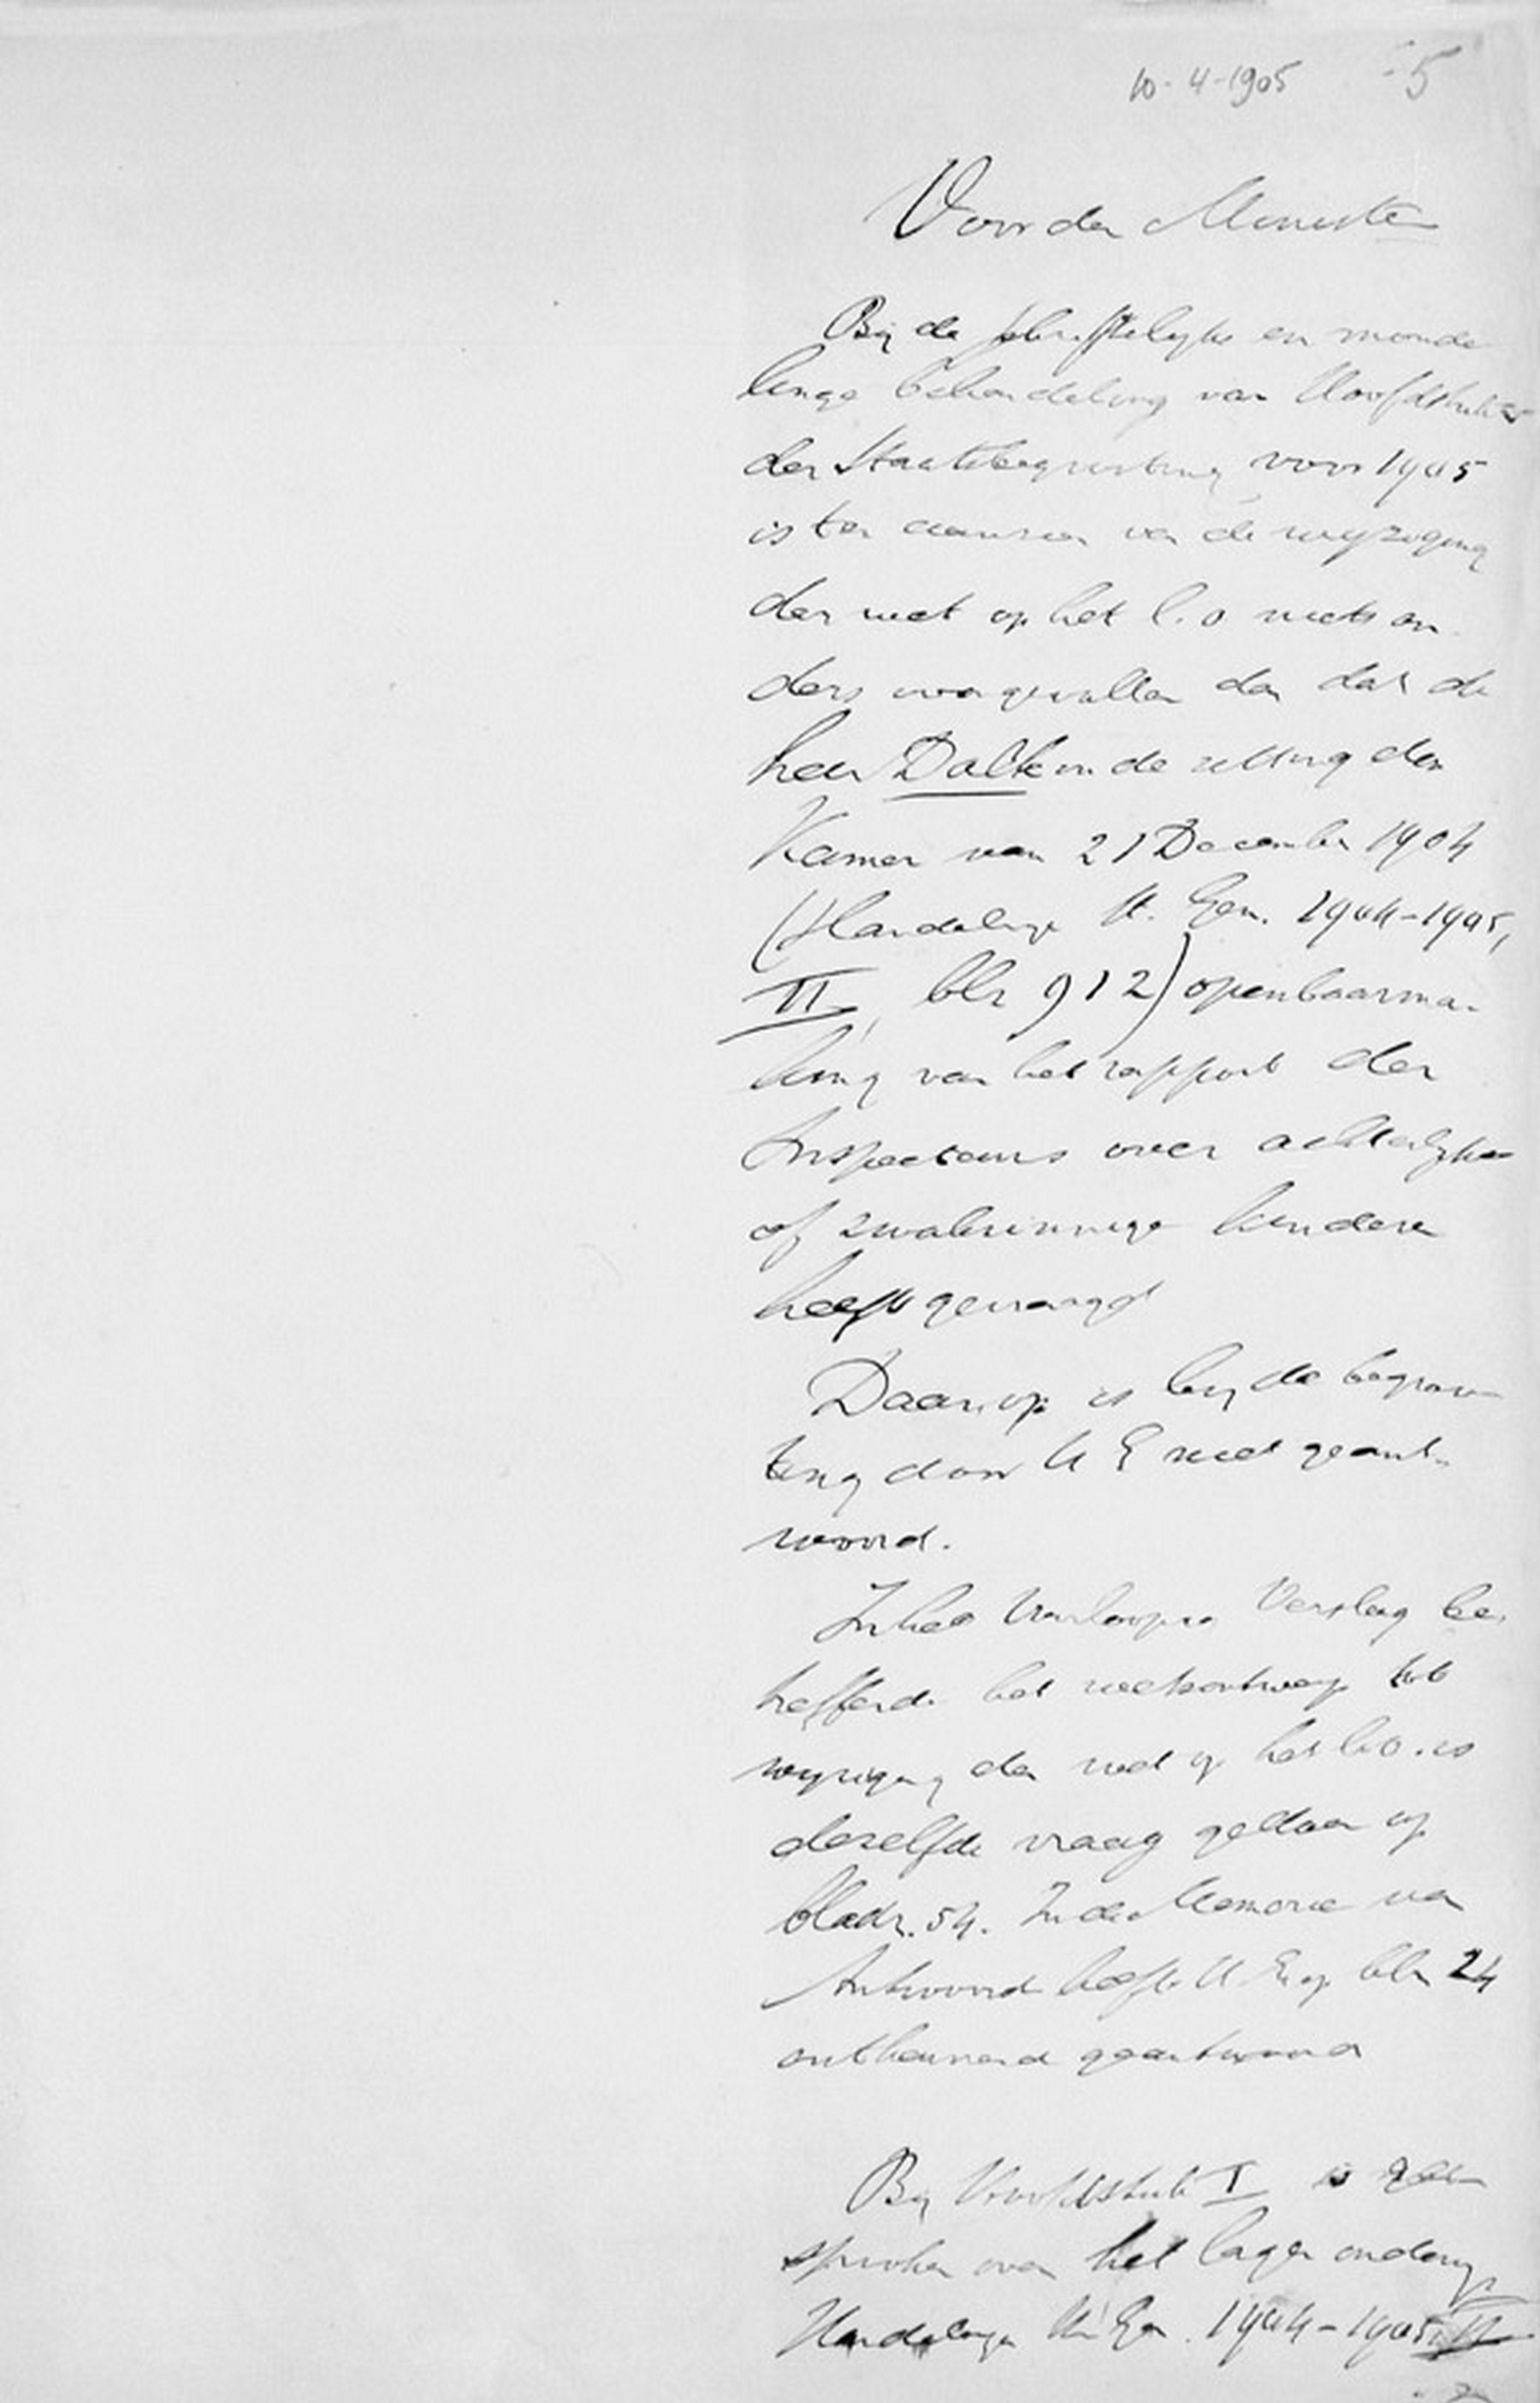 10-4-1905 5
Voor den Minister
Bij de schriftelijke en monde
linge behandeling van Hoofdstuk
der Staatsbegrooting voor 1905
is ten aanzien van de wijziging
der wet op het l.o niets an
ders voorgevallen dan dat de
heer Bolk in de zitting der
Kamer van 21 December 1904
(Handelingen St. Gen. 1904-1905,
II, blz 912) openbaarma-
king van het rapport der
Inspecteurs over achterlijke
of zwakzinnige kinderen
heeft gevraagd
Daarop is bij de begroo
ting door U E niet geant-
woord.
In het Voorloopig Verslag be
treffende het wetsontwerp tot
wijziging der wet op het l.o. is
dezelfde vraag gedaan op
bladz. 54. In de Memorie van
Antwoord heeft U E op blz 24
ontkennend geantwoord
Bij Hoofdstuk I is
gesproken over het lager onderwijs
Handelingen St. Gen. 1904-1905, II